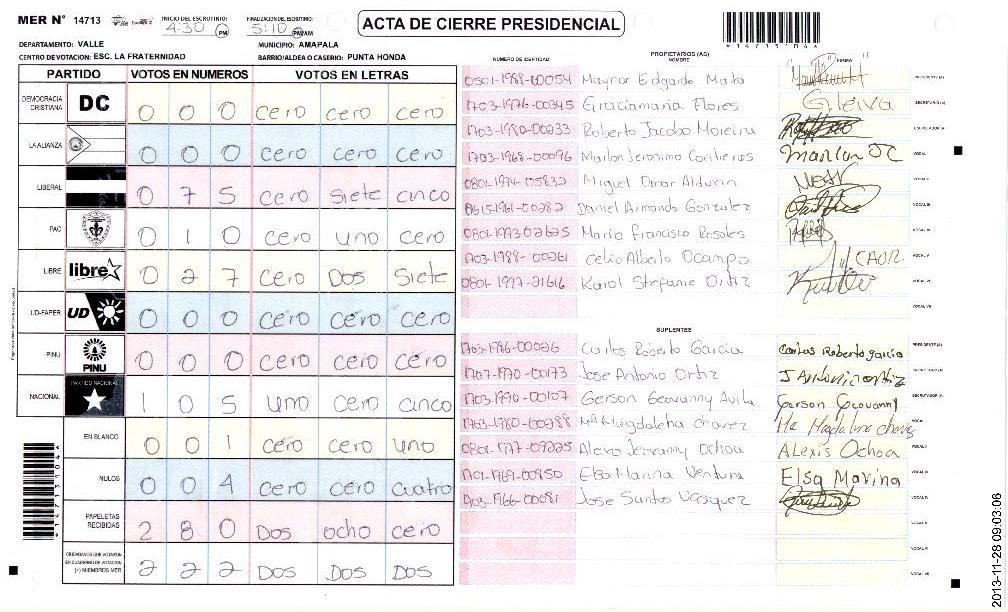 MER N° 14713
INICIO DEL ESCRUTINIO: 4:30 PM
FINALIZACION DEL ESCRUTINIO: 5:10 PM/AM
ACTA DE CIERRE PRESIDENCIAL
*1471306*
DEPARTAMENTO: VALLE MUNICIPIO: AMAPALA
CENTRO DE VOTACION: ESC. LA FRATERNIDAD BARRIO/ALDEA O CASERIO: PUNTA HONDA
PARTIDO VOTOS EN NUMEROS VOTOS EN LETRAS
DEMOCRACIA CRISTIANA DC 0 0 0 cero cero cero
LA ALIANZA 0 0 0 cero cero cero
LIBERAL 0 7 5 cero siete cinco
PAC 0 1 0 cero uno cero
LIBRE libre 0 2 7 cero DOS siete
UD-FAPER UD 0 0 0 cero cero cero
PINU PINU 0 0 0 cero cero cero
NACIONAL PARTIDO NACIONAL 1 0 5 uno cero cinco
EN BLANCO 0 0 1 cero cero uno
NULOS 0 0 4 cero cero cuatro
PAPELETAS RECIBIDAS 2 8 0 DOS ocho cero
CIUDADANOS QUE VOTARON EN CUADERNO DE VOTACION (+) MIEMBROS MER 2 2 2 DOS DOS DOS
*1471306*
PROPIETARIOS (AS)
NUMERO DE IDENTIDAD NOMBRE FIRMA
0501-1988-00054 Maynor Edgardo Mata PRESIDENTE (A)
1703-1976-00345 Graciamaria Flores G. leiva SECRETARIO (A)
1703-1980-00233 Roberto Jacobo Moreira ESCRUTADOR (A)
1703-1968-00096 Marlon Jeronimo Contreras Marlon JC VOCAL I
0801-1974-05832 Miguel Omar VOCAL II
0615-1961-00282 Daniel Armando Gonzalez VOCAL III
0801-1993-02625 Mario Francisco Rosales VOCAL IV
1703-1988-00261 Celio Alberto Ocampo CAOR. VOCAL V
0801-1977-21616 Karol Stefanie Ortiz VOCAL VI
VOCAL VII
SUPLENTES
1703-1986-00026 Carlos Roberto Garcia Carlos Roberto garcia PRESIDENTE (A)
1707-1970-00173 Jose Antonio Ortiz J Antonio ortiz SECRETARIO (A)
1703-1990-00107 Gerson Geovanny Avila Gerson Geovanny ESCRUTADOR (A)
1703-1980-00288 Mª Magdalena Chavez Ma Magdalena chavez VOCAL I
Ochoa Alexis Ochoa VOCAL II
1701-1969-00850 Elsa Marina Ventura Elsa Marina VOCAL III
1703-1966-00081 Jose Santos Vasquez VOCAL IV
VOCAL V
VOCAL VI
VOCAL VII
2013-11-28 09:03:06